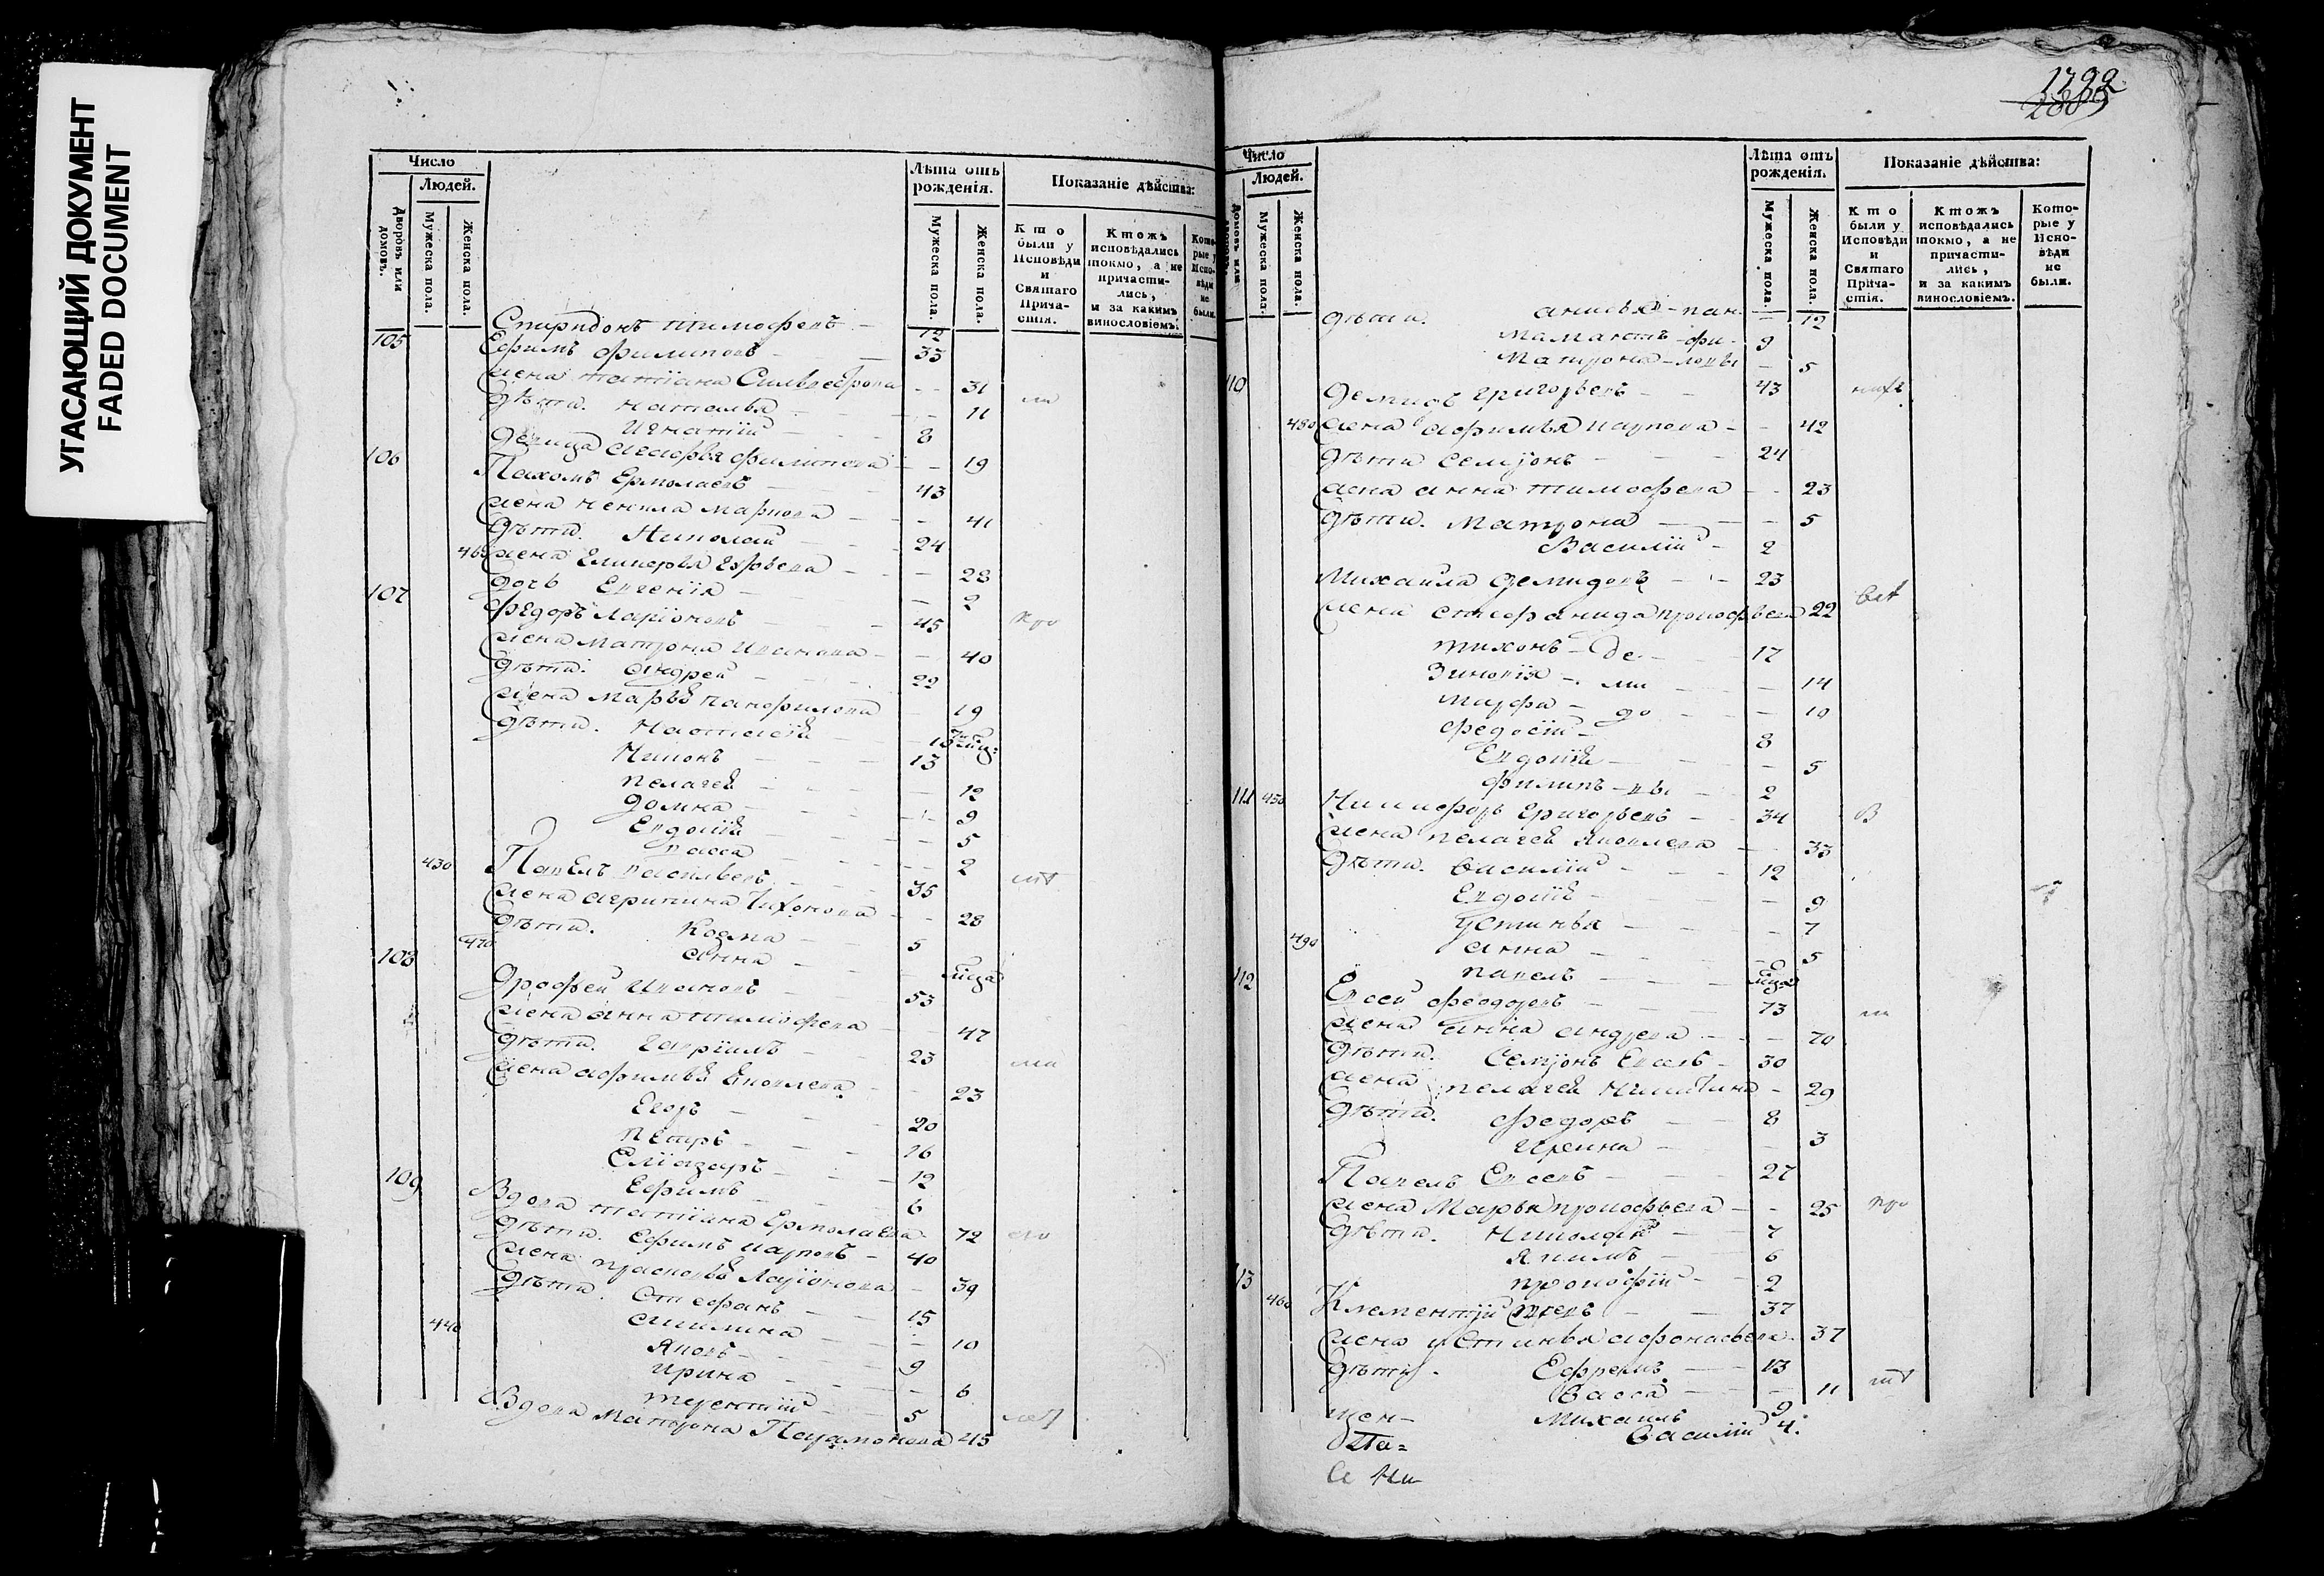 УГАСАЮЩИЙ ДОКУМЕНТ
FADED DOCUMENT
Число
Людей.
Дворовъ или домовъ.
Мужеска пола.
Женска пола.
Лѣта отъ рожденія.
Мужеска пола.
Женска пола.
Показаніе дѣйства:
Кто были у Исповѣди и Святаго Прича-стія.
Ктожъ исповѣдались токмо, а не причасти-лись, и за какимъ винословіемъ.
Кото-рые у Испо-вѣди не были.
Спиридонъ тимофеевъ - 12
105 Ефимъ филиповъ - 33
жена татіана Силвестрова - 31
дѣти. наталья - 11
Игнатій - 8
девица агафья филипова - 19
106 Пахомъ Ермолаевъ - 43
жена ненила Маркова - 41
дѣти. Николай - 24
жена Гликерья - 23
дочь Евгенія - 2
107 федоръ Ларіоновъ - 45
жена матрона Иванова - 40
дѣти: андрей - 22
жена марья панфилова - 19
дѣти. Настасья
Никонъ - 13
пелагея - 12
домна - 9
Евдокія - 5
васса - 2
430 Павелъ васильевъ - 35
жена агрипина - 28
дѣти. Косма - 5
470 анна
108 Дрофей Ивановъ - 53
жена анна тимофеева - 47
дѣти. Гаврилъ - 23
жена афимья Яковлева - 23
Егоръ - 20
петръ - 16
Еліазаръ - 12
Ефимъ - 6
109 Вдова татіана Ермолаева 72
дѣти. Ефимъ карповъ - 40
жена прасковья Ларіонова - 39
дѣти. Стефанъ - 15
440 акилина - 10
Яковъ - 9
Ирина - 6
терентій - 5
Вдова Матрона 45
1722
Число
Людей.
Дворовъ или домовъ.
Мужеска пола.
Женска пола.
Лѣта отъ рожденія.
Мужеска пола.
Женска пола.
Показаніе дѣйства:
Кто были у Исповѣди и Святаго Прича-стія.
Ктожъ исповѣдались токмо, а не причасти-лись, и за какимъ винословіемъ.
Кото-рые у Испо-вѣди не были.
дѣти. анисья - пан - 12
Мамантъ - фи - 9
Матрона - ловы - 5
110 Демидъ григорьевъ - 43
480 жена афимья карпова - 42
дѣти Семіонъ - 24
жена анна тимофеева - 23
дѣти. Матрона - 5
Василій - 2
Михайла демидовъ - 23
жена стефанида прокофьева 22
тихонъ - де - 17
Зиновія - ми - 14
марфа - до - 10
федосій - 8
Евдокія - 5
филипъ - вы - 2
111 450 Никифоръ Григорьевъ - 34
жена пелагея Яковлева - 33
дѣти. василій - 12
Евдокія - 9
Устинья - 7
490 анна - 5
павелъ
112 Евсей феодоровъ - 73
жена анна андреева - 70
дѣти. Семіонъ Евсеевъ - 30
жена пелагея Никитина - 29
дѣти. федоръ - 8
Ирина - 3
Павелъ Евсеевъ - 27
жена Марья прокофьева - 25
дѣти. Николай - 7
Якимъ - 6
прокофій - 2
113 460 Клементій - 37
жена устинья афонасьева 37
дѣти. Ефремъ - 13
васса - 11
Михаилъ 9
Василій 4.